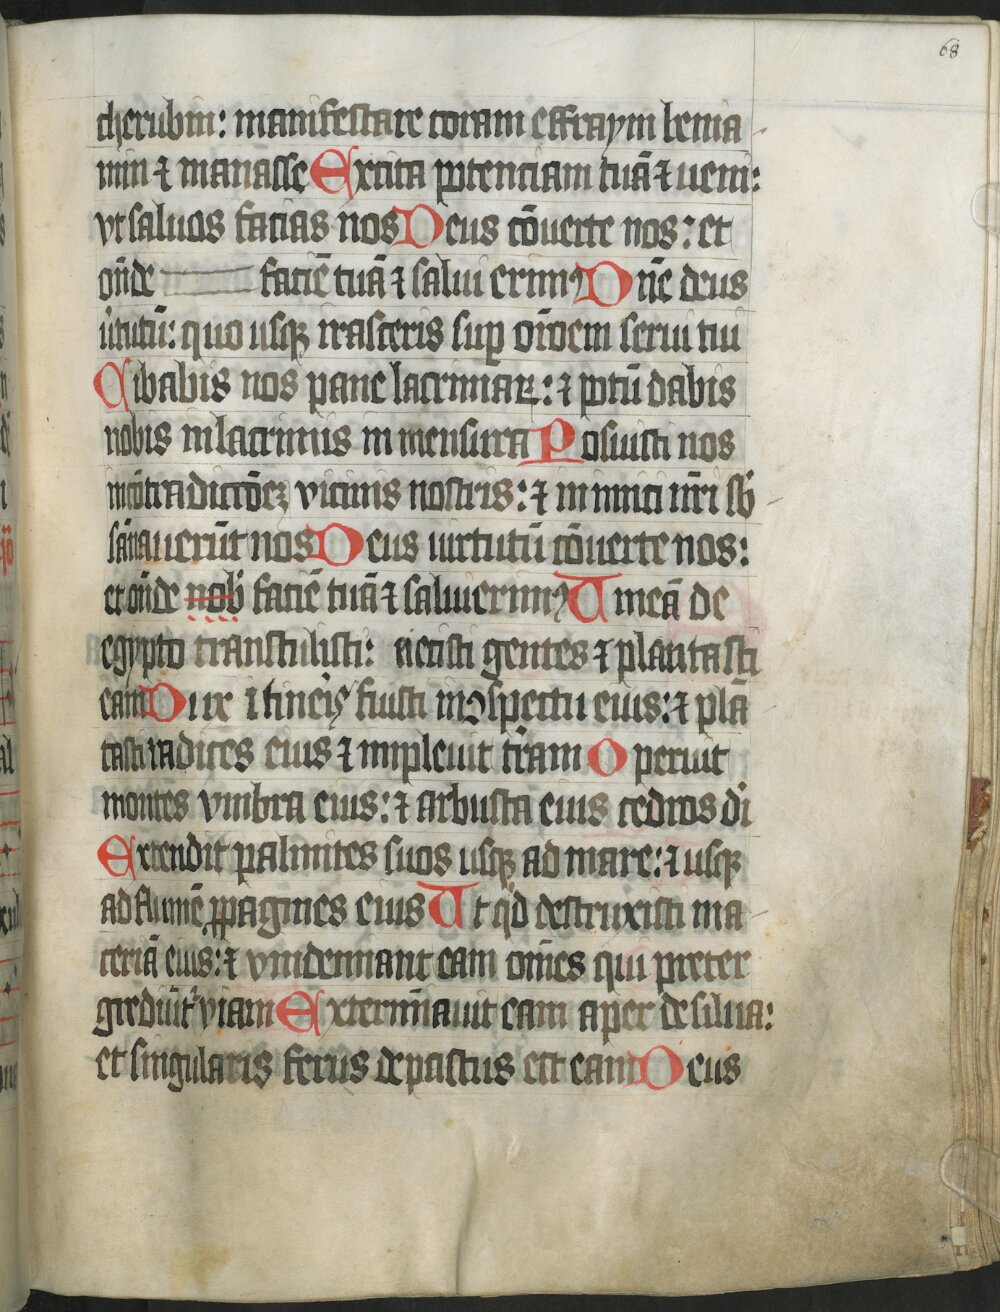 68
cherubin: manifestare coram effraym benia
min ⁊ manasse Excita potenciam tuā ⁊ ueni:
vt saluos facias nos Deus cōuerte nos: et
on̄de faciē tuā ⁊ salui erimꝰ Dn̄e deus
ûtutū: quo usqꝫ irasceris suꝑ or̄oem serui tui
Cibabis nos pane lacrimaꝝ: ⁊ potū dabis
nobis in lacrimis in mensura Posuisti nos
incōtradictōeꝫ vicinis nostris: ⁊ inimici nr̄i sb̄
sānauerūt nos Deus uirtutū cōuerte nos:
et on̄de nob̄ faciē tuā ⁊ salui erimꝰ Uineā de
egypto transtulisti: eiecisti gentes ⁊ plantasti
eam Dux itineris fuisti in ꝯspectu eius: ⁊ plā
tasti radices eius ⁊ impleuit tr̄am Operuit
montes vmbra eius: ⁊ arbusta eius cedros di
Extendit palmites suos usqꝫ ad mare: ⁊ usqꝫ
ad flumē ꝓpagines eius Ut qͥd destruxisti ma
ceriā eius: ⁊ vindemiant eam om̄es qui preter
grediūt᷑ viam Exterm̄inauit eam aper de silua:
et singularis ferus depastus est eam Deus